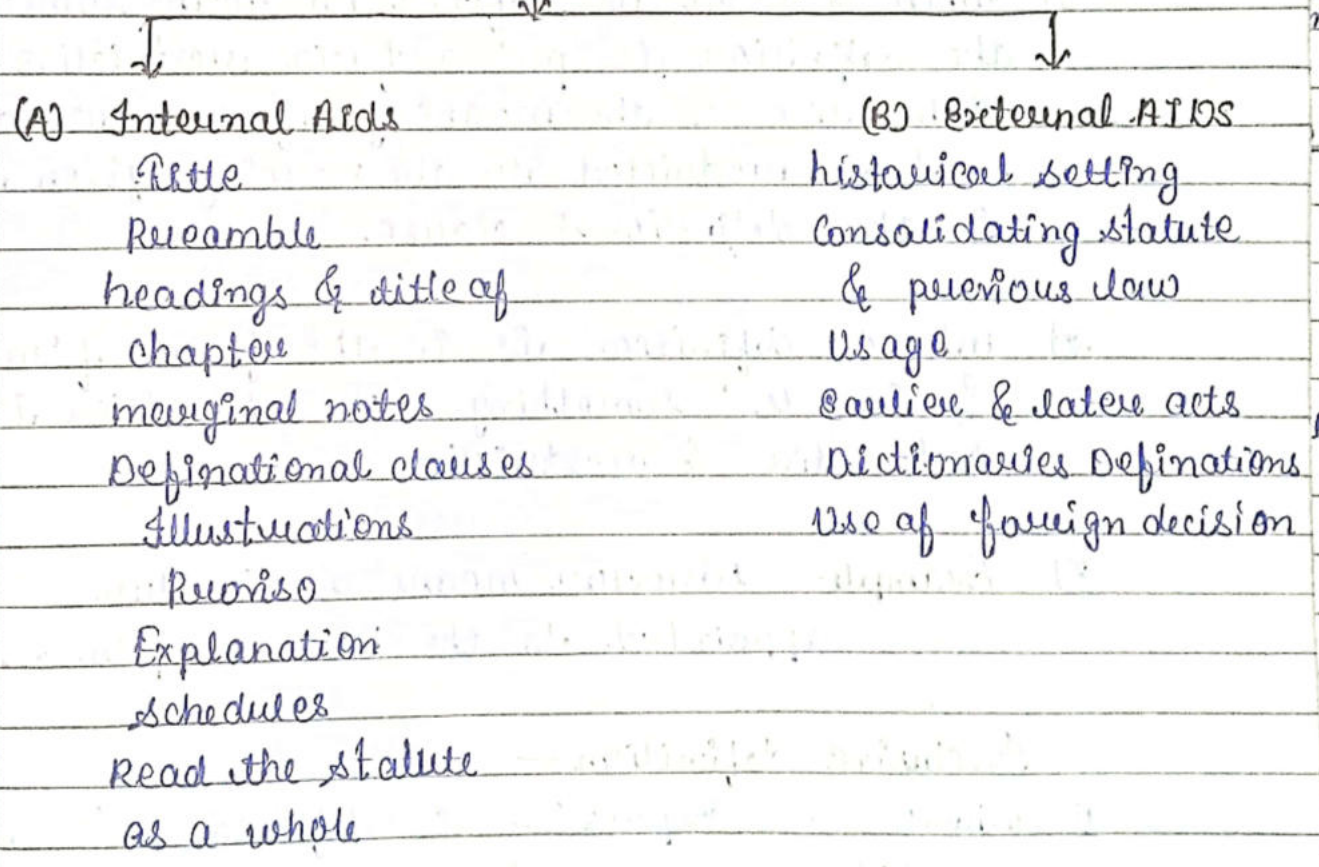 (A) Internal Aids
Title
Preamble
headings & title of
chapter
marginal notes
Definational clauses
Illustrations
Proviso
Explanation
schedules
Read the statute
as a whole
(B) External AIDS
historical setting
Consolidating statute
& previous law
Usage
Earlier & later acts
Dictionaries Definations
Use of foreign decision